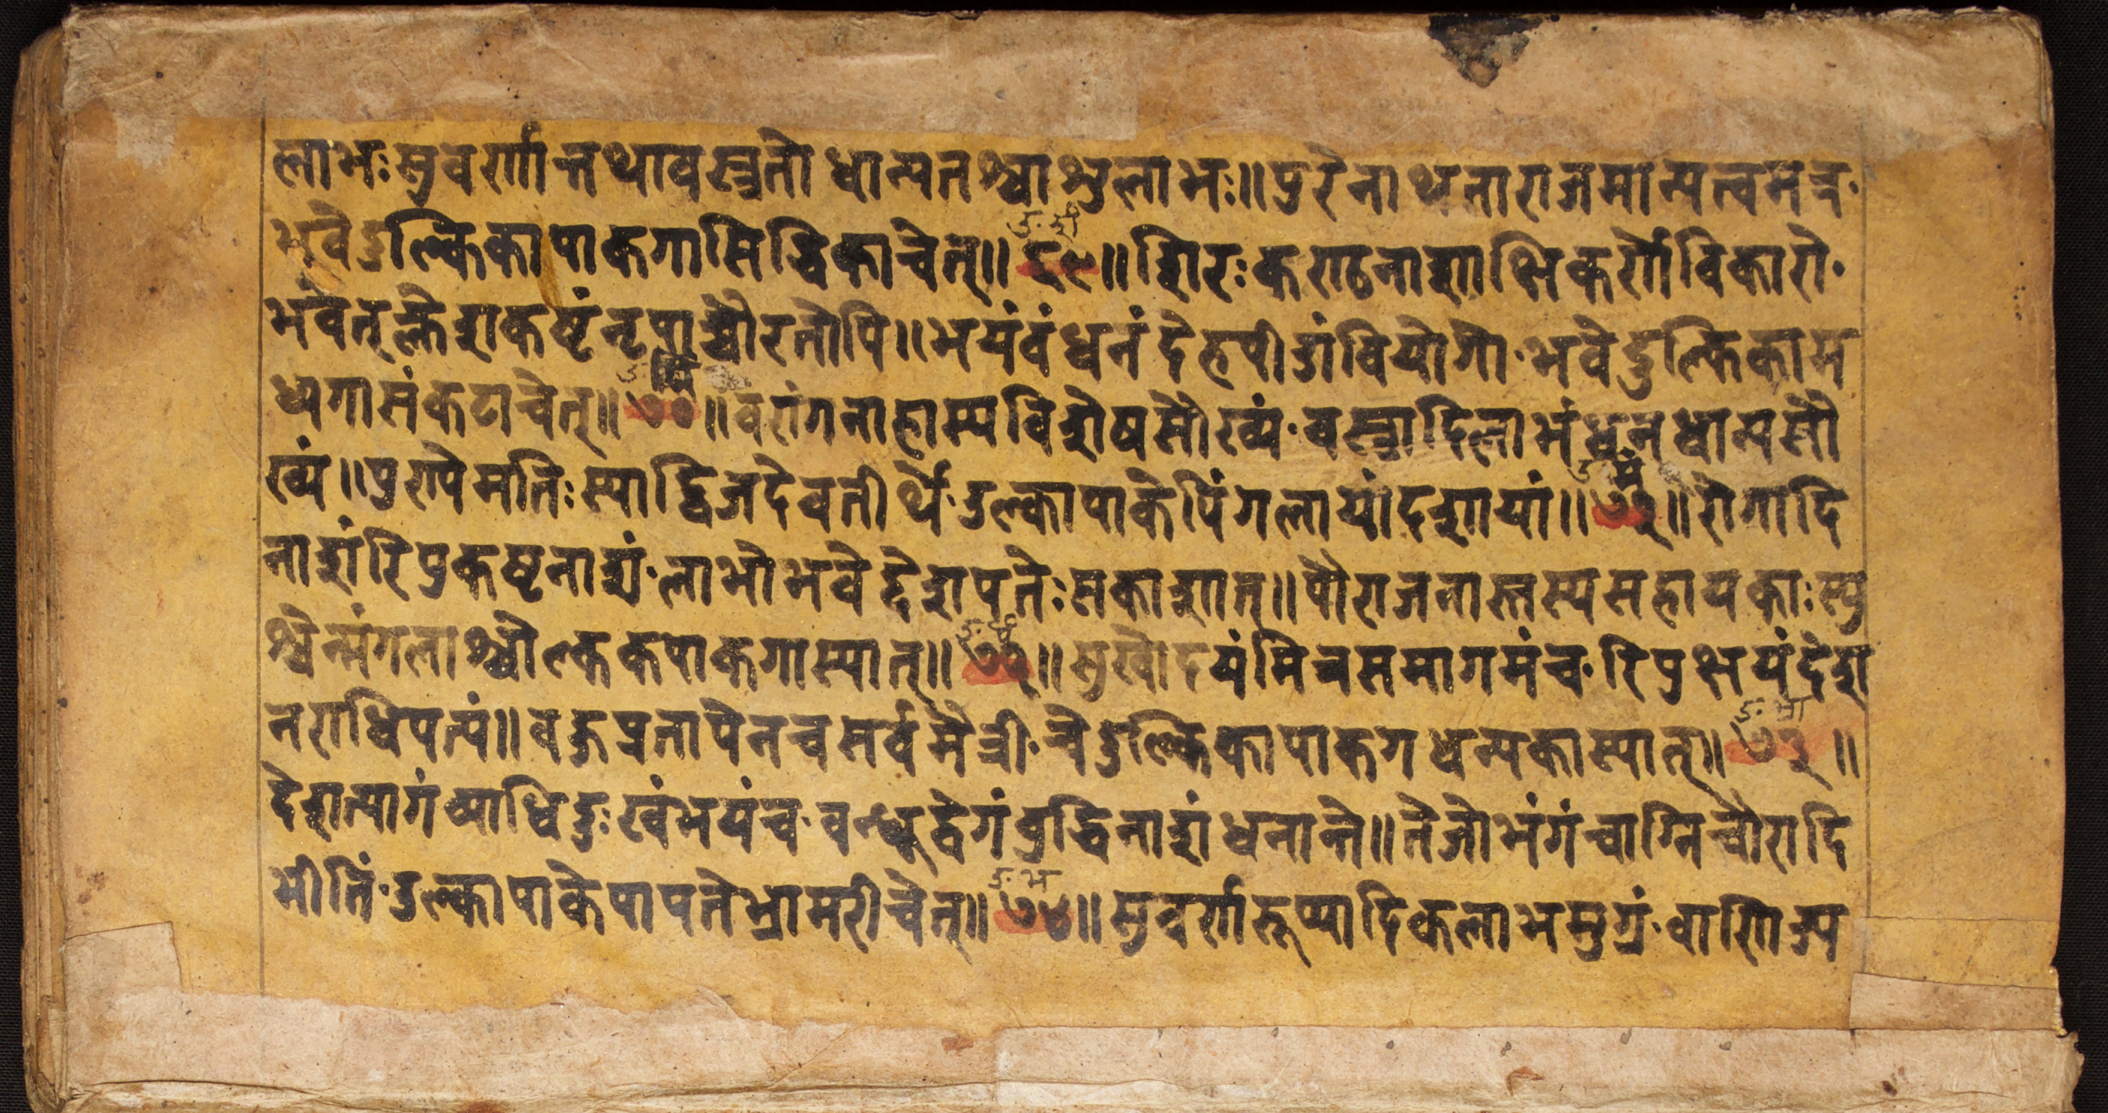 लाभः सुवर्णान्नथावस्त्रतो धान्यतश्चाश्वलाभः॥ पुरे नाथता राजमान्यत्वमत्र·
भवेदुल्किकापाकगा सिद्धिका चेत्॥ ६९॥ शिरःकराठनाशाक्षिकर्णो विकारो·
भवेत् क्लेशकष्टं नृपाच्चौरतोपि॥ भयं वंधनं देहपीडां वियोगो· भवेदुल्किकाम
ध्यगा संकटा चेत्॥ ७०॥ वरांगनाहास्यविशेषसौख्यं· वस्त्रादिलाभं धनधान्यसौ
ख्यं॥ पुरापे मतिः स्याद्द्विजदेवतीर्थे· उल्कापाके पिंगलायां दशायां॥ ७१॥ रोगादि
नाशं रिपुकष्टनाश्यं· लाभो भवेद्देशपतेः सकाशात्॥ पौराजनास्तस्य सहायकाः स्यु
श्चेन्मंगलाश्चोल्ककपाकगा स्यात्॥ ७२॥ सुखोदयं मित्रसमागमं च· रिपुक्षयं देश
नराधिपत्यं॥ वज्जप्रतापेन च सर्वमैत्री· चेदुल्किकापाकग धन्यका स्यात्॥ ७३॥
देशत्यागं व्याधिदुःखं भयं च· वन्धूद्वेगं वुद्धिनाशं धनान्ते॥ तेजोभंगं चाग्निचौरादि
भीतिं· उल्कापाके पापते भ्रामरी चेत्॥ ७४॥ सुवर्णरूप्यादिकलाभमुग्रं· वाणिज्य